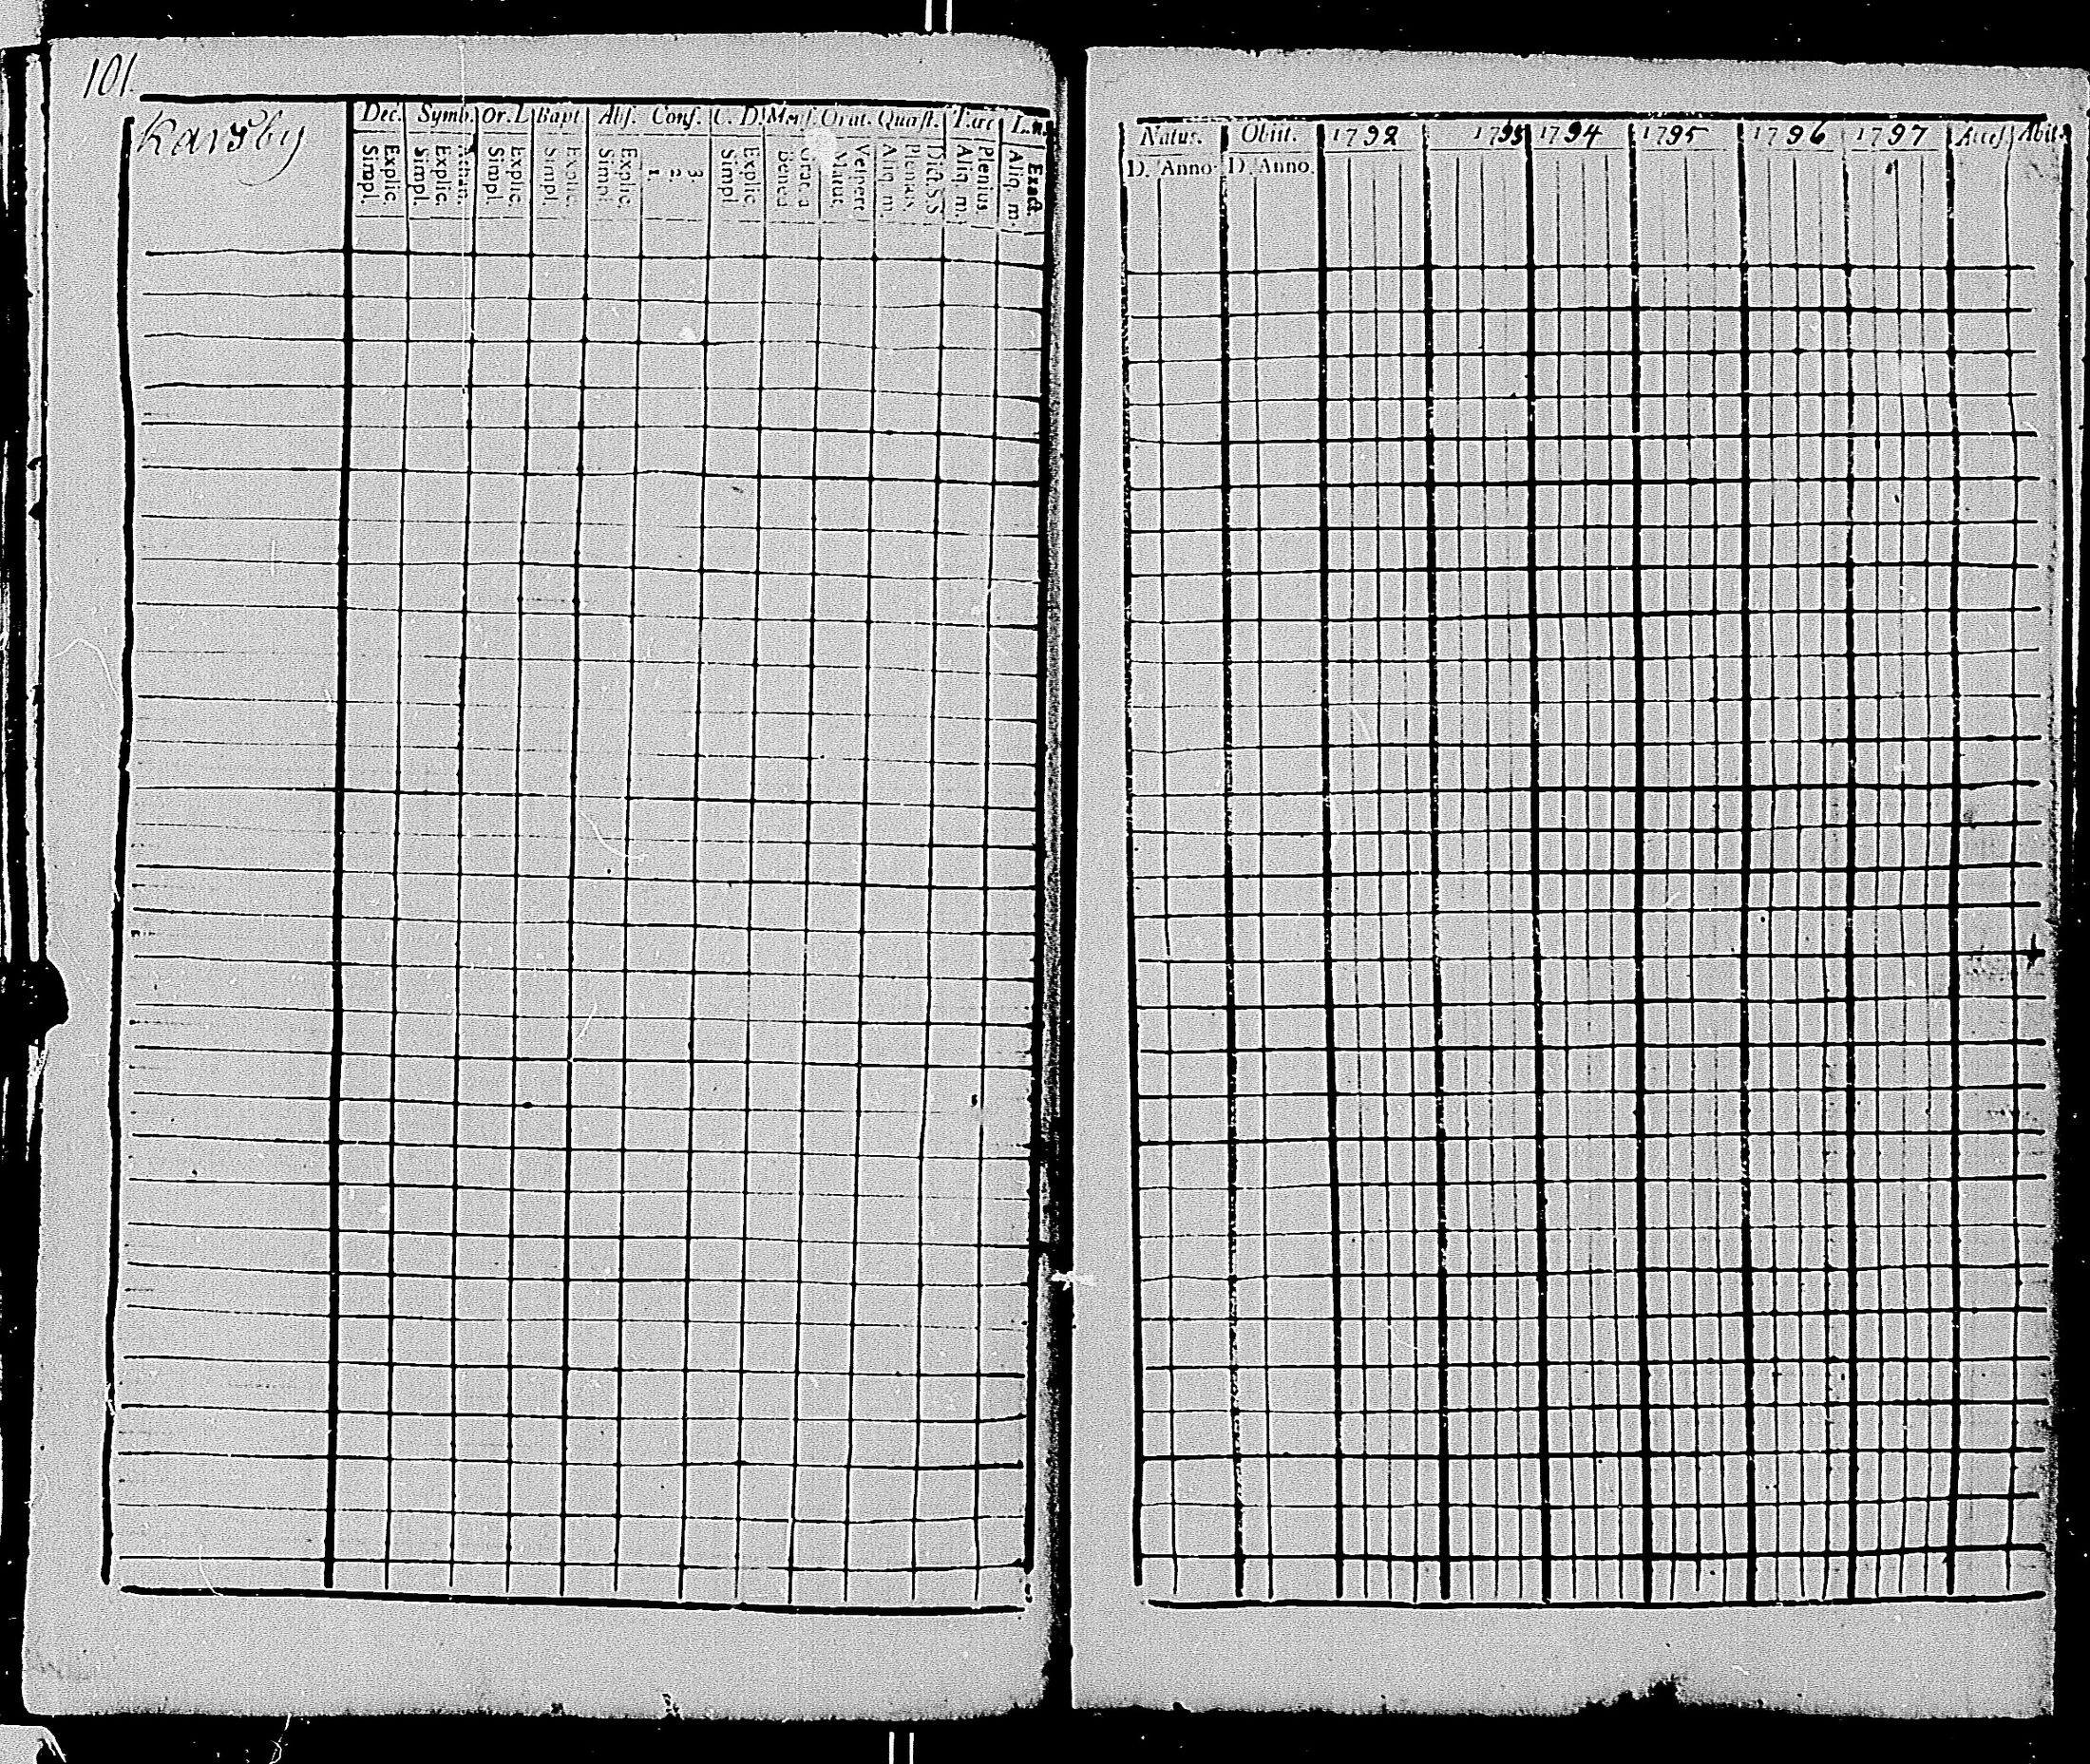 101.
Karsby
Dec. Symb. Or. D Bapt Abs. Conf. C. D. Mens. Orat. Quæst. T.æc L.n.
Explic. Simpl. Explic. Simpl. Explic. Simpl. Explic. Simpl. Explic. Simpl. 3. 2. 1. Explic. Simpl. Grat. a Bened. Vespert. Matut. Dict. S.S. Plenius. Aliq. m. Plenius. Aliq. m. Exact. Aliq. m.
Natus. Obiit. 1792 1793 1794 1795 1796 1797 Access. Abit.
D. Anno. D. Anno.